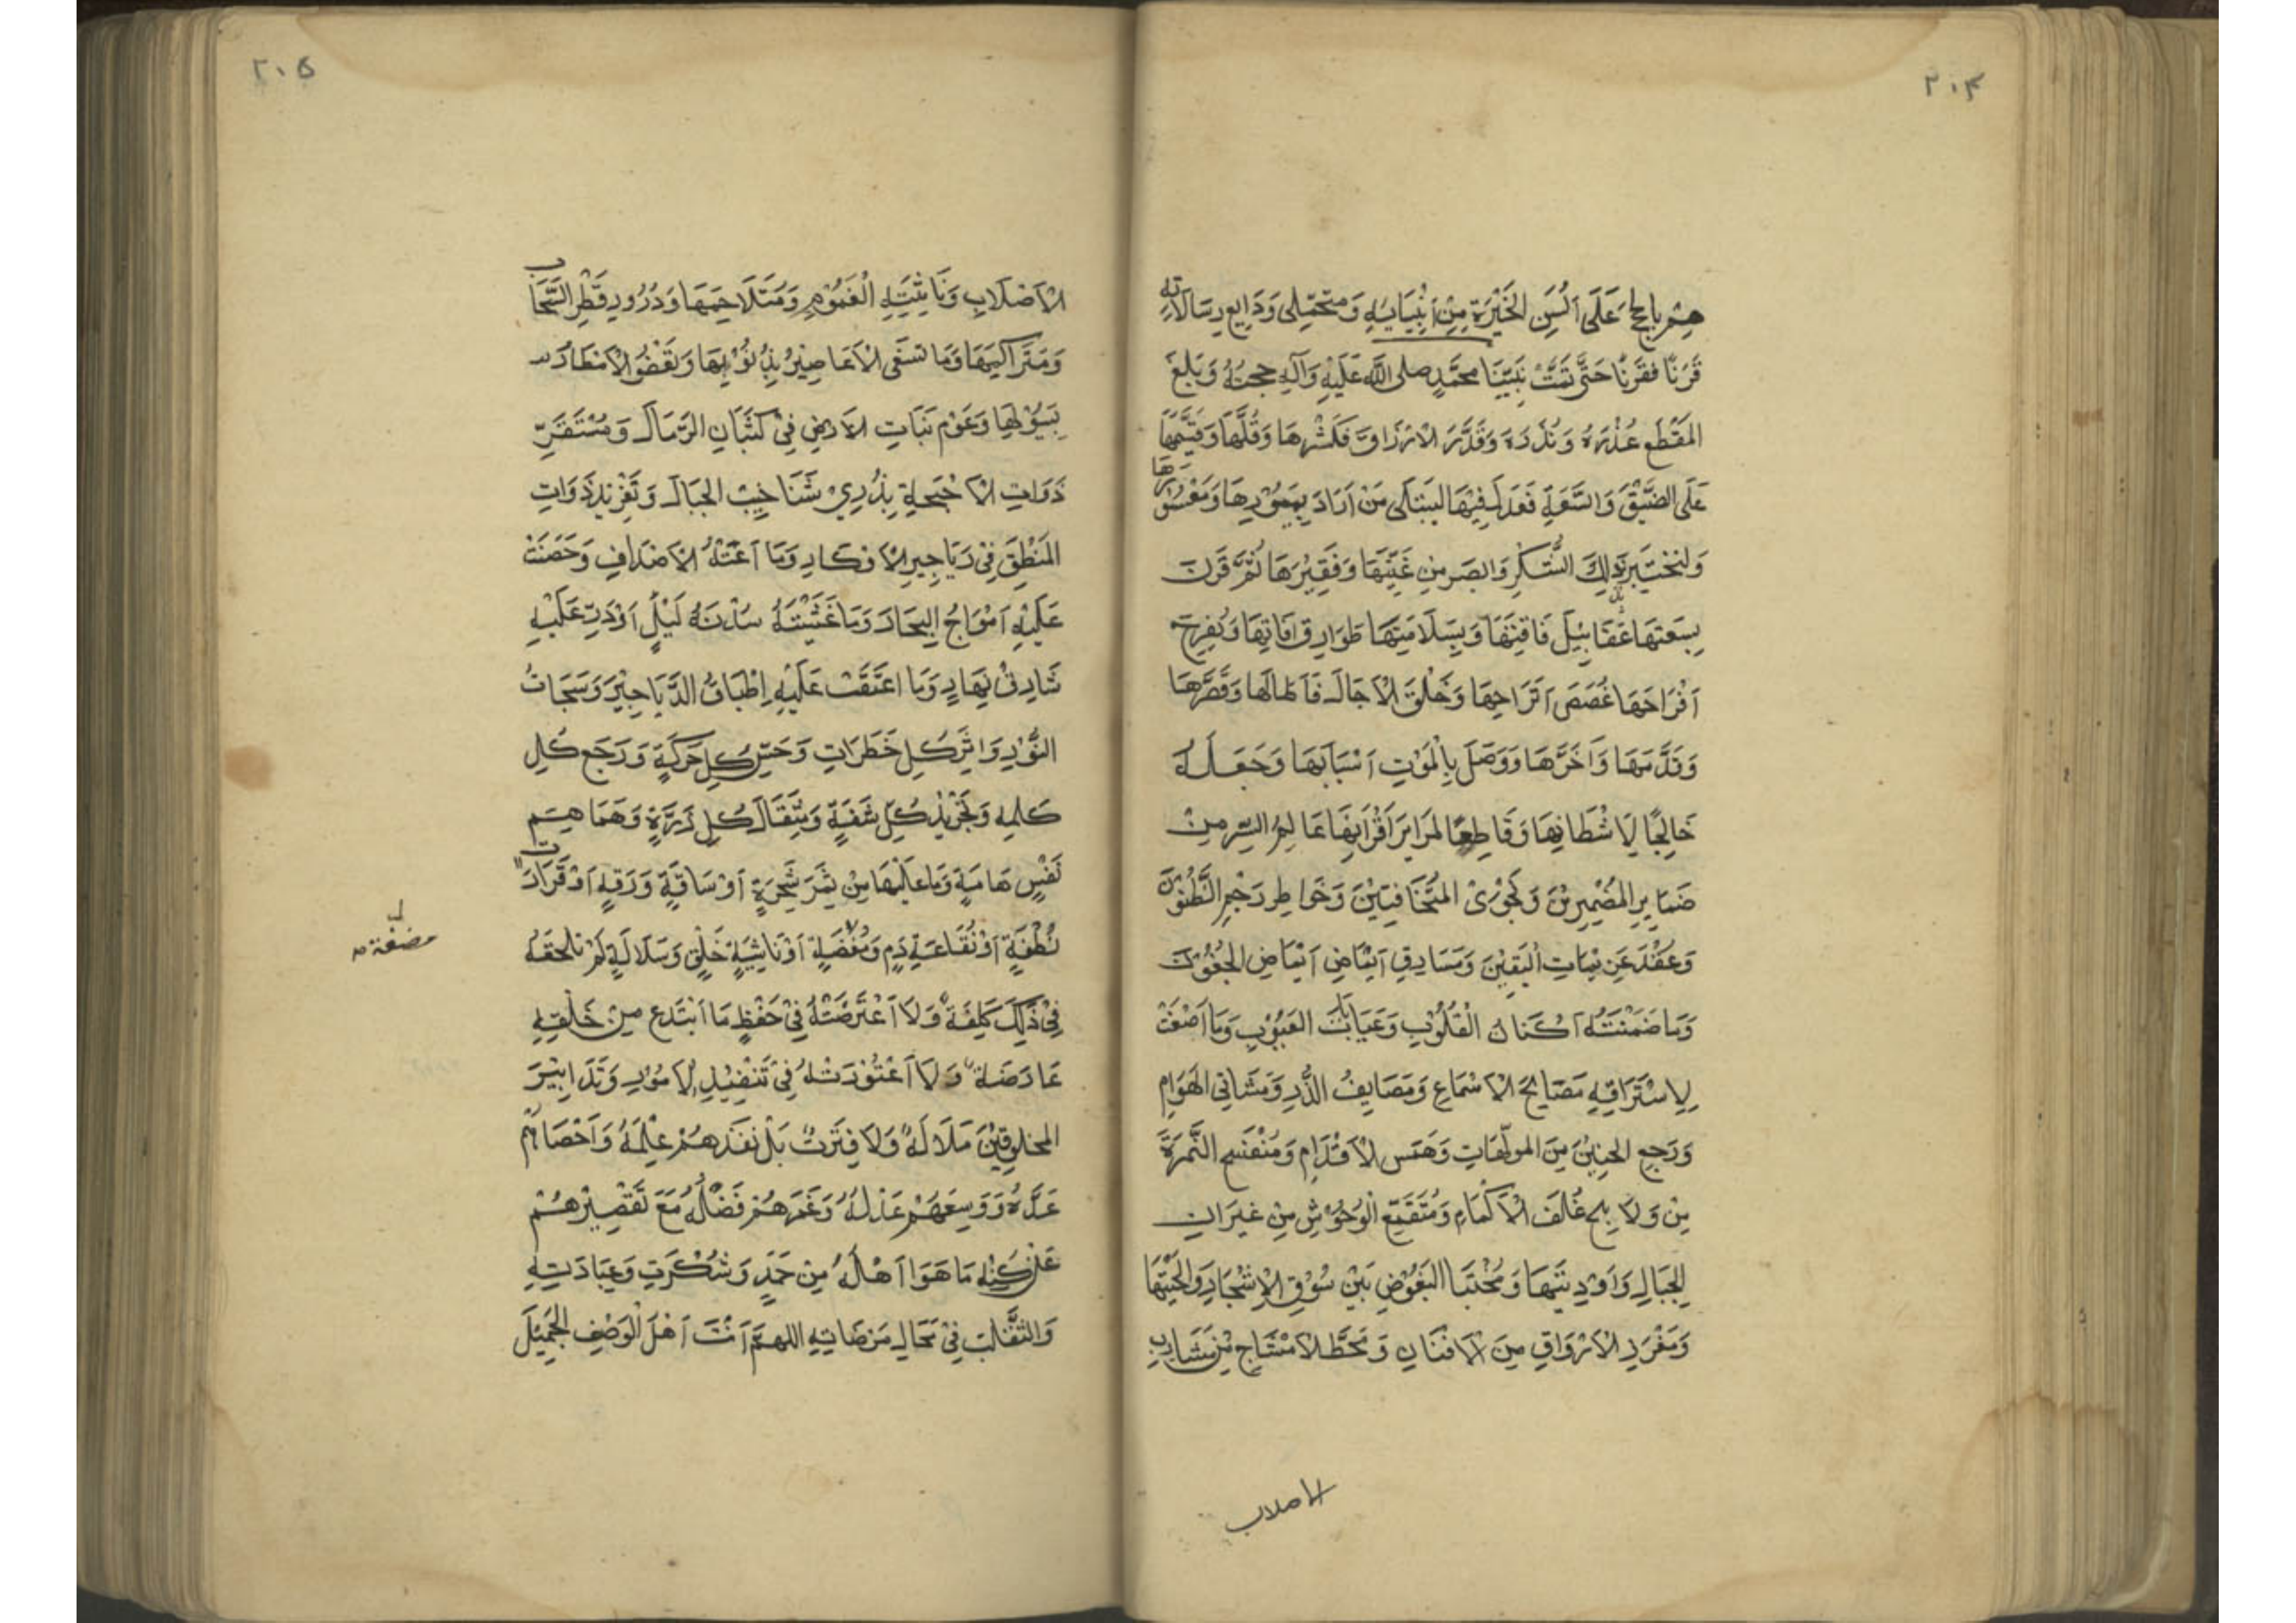 ۲۰۴
هم بالحج عَلَى اَلْسُنِ الخَيْرَةِ مِنْ اَنْبِيَائِهِ وَمتَحَمِّلِى وَدَايِع رِسَالَاتِهِ
قَرْنًا فقَرْنًا حَتَّى تَمَّتْ بِنَبِيِّنَا محمَّدٍ صلى الله عَلَيْهِ وَآلِهِ حجتهُ وَبَلغَ
المَقْطَع عُذْرَهُ وَنُذُرَهُ وَقَدَّرَ الاَرْزَاقَ فَكَثَّرهَا وَقَلَّلَهَا وَقَسَّمَهَا
عَلَى الضيْقِ وَالسَّعَةِ فَعَدلَ فِيْهَا ليَبْتَلَى مَنْ اَرَادَ بِمَيْسُوْرِهَا وَمَعْسُوْرِهَا
وَليَخْتَبِرَ بِذٰلِكَ الشُّكْرَ وَالصَبرمِنْ غَنِيِّهَا وَفَقِيْرِهَا ثُمَّ قَرَنَ
بِسَعَتِهَا عَقَابِيْلَ فَاقَتِهَا وَبِسَلَامَتِهَا طَوَارِقَ آفَاتِهَا وَبُفرج
اَفْرَاحِهَا غُصَصَ اَتْرَاحِهَا وَخَلَقَ الاٰجَالَ فَاَطَالَهَا وَقَصَّرَهَا
وَقَدَّمَهَا وَاَخَّرَهَا وَوَصَلَ بِالْمَوْتِ اَسْبَابَهَا وَجَعَلَهُ
خَالِجًا لِاَشْطَانِهَا وَقَاطِعًا لمَرَايرِ اَقْرَانِهَا عَالِمُ السِّرِ مِنْ
ضَمَايرِ المُضْمِرِيْنَ وَنَجْوَىْ المُتَخَافِتِيْنَ وَخَوَاطِر رَجْمِ الظُّنُوْنَ
وَعُقَدَ عَزِيمَاتِ الْيَقِيْنَ وَمَسَارِقِ اِيْمَاضِ الجُفُوْنَ
وَمَاضَمنَتْهُ اَكْنَانُ الْقُلُوْبِ وَغَيَابَاتُ الغيُوْبِ وَمَا اَصْغَتْ
لِاِسْتِرَاقِهِ مَصَايِحُ الْاَسْمَاعِ وَمَصَايِفُ الذَّرِ وَمَشَاتِى الهَوَامِ
وَرَجعِ الحنِيْنَ مِنَ المولَهَاتِ وَهَمْسِ الْاَقْدَامِ وَمُنْفَسَحِ الثَّمَرَةِ
مِنْ وَلَايِج غُلَفَ الْاَكْمَامِ وَمُنْقَمَعِ الْوُحُوْشِ مِنْ غِيَرَانِ
الجِبَالِ وَاَوْدِيَتِهَا وَمُخْتَبَا البَعُوْضِ بَيْنَ سُوْقِ الْاَشْجَارِ وَالْحِيَتِهَا
وَمَغْرَزِ الاَوْرَاقِ مِنَ الاَفنَانِ وَمَحَطِّ الاَمْشَاجِ مِنْ مَشَارِبِ
الاصلاب
۲۰۵
الْاَصْلَابِ وَنَاشِئَةِ الْغيُوْمِ وَمُتَلَاحِمِهَا وَدُرُورِ قَطْرِ السَّحَابِ
وَمُتَرَاكِمِهَا وَمَا تَسْفَى الْاَعَاصِيْرُ بِذُيُوْلِهَا وَتَعْفُو الْاَمْطَارُ
بِسُيُوْلِهَا وَعَوْمِ نَبَاتِ الاَرْضِ فِىْ كُثْبَانِ الرِّمَالَ وَمُسْتَقَرِّ
ذَوَاتِ الْاَجْنِحَةِ بِذُرِى شَنَاخِيْبِ الجِبَالِ وَتَغْرِيْدِ ذَوَاتِ
المَنْطِقِ فِىْ دَيَاجِيرِ الْاَوْكَارِ وَمَا اَعَتْهُ الْاَصْدَافِ وَحَضَنَتْ
عَلَيْهِ اَمْوَاجُ البِحَارَ وَمَا غَشِيَتْهُ سدْنَهُ لَيْلٍ اَوْ ذَرّ عَلَيْهِ
شَارِقُ نِهَارٍ وَمَا اعْتَقَبَتْ عَلَيْهِ اِطْبَاقُ الدَّيَاجِيْرِ وَسَبَحَاتُ
النُّوْرِ وَاثَرِكلِ خَطْرَاتٍ وَحَسِّ كلِ حَرَكَةٍ وَرَجْع كُلِ
كَلِمه وَتَحْرِيْكِ كُلِّ شَفَةٍ وَمِثْقَالَ كُلِ ذَرَّةٍ وَهَمَاهِمِ
نَفْسٍ هَامَةٍ وَمَا عَلَيْهَا مِنْ ثمَرَ شَجَرَةٍ اَوْ سَاقِة وَرَقهٍ اَوْ قَرَارَتِ
نُطْفَةٍ اَوْ نُقَاعَةِ دَمٍ وَمُضْغَةٍ اَوْ نَاشِيَةِ خَلْقٍ وَسَلَالَةٍ لَمْ تلحقهُ
مضغة
فِىْ ذٰلِكَ كلفَةٌ وَلَا اَعْتَرَضَتْهُ فِىْ حَفْظِ مَا اَبْتَدَع مِنْ خَلْقِهِ
عَارِضَةٌ وَلَا اَعْتَوَرَتْهُ فِىْ تَنْفِيْذِ الْاَمُوْرِ وَتَدَابِيْرَ
المخلوقِيْنَ مَلَالَةٌ وَلَا فِتَرَتٌ بَلْ نَفَذَهُمْ عِلْمَهُ وَاَحْصَاهُمْ
عَدَّهُ وَوَسِعَهُمْ عَدْلُهُ وَغَمَرَهُمْ فَضْلُهُ مَعَ تَقْصِيْرِهُمْ
عَنْ كنْهِ مَا هَوَا اَهْلَهُ مِنْ حَمدٍ وَشُكْرَتِ وَعِبَادَتِهِ
وَالتَقَلب فِىْ مَحَالِ مَرْضَاتِهِ اللهم اَنْتَ اَهْلَ الْوَصْفِ الجَمِيْلَ